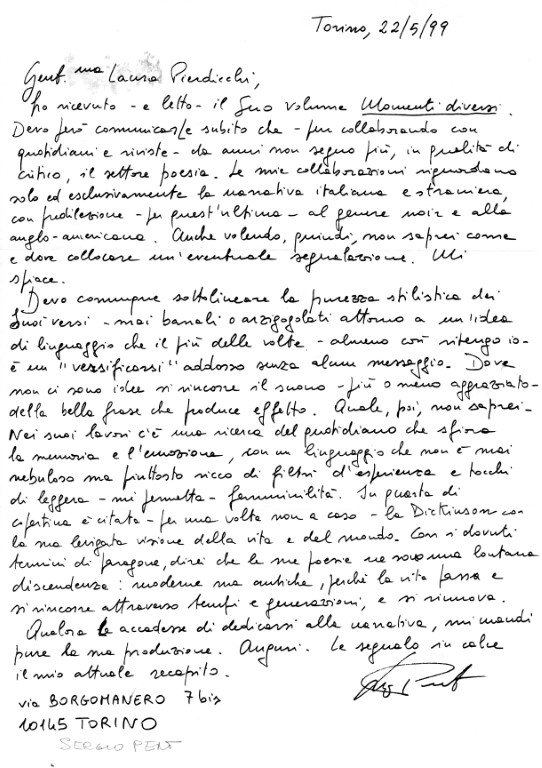 Torino, 22/5/99
Gent.ma Laura Pierdicchi,
ho ricevuto - e letto - il Suo volume Momenti diversi.
Devo però comunicarLe subito che - pur collaborando con
quotidiani e riviste - da anni non seguo più, in qualità di
critico, il settore poesia. Le mie collaborazioni riguardano
solo ed esclusivamente la narrativa italiana e straniera,
con predilezione - per quest'ultima - al genere noir e alla
anglo-americana. Anche volendo, quindi, non saprei come
e dove collocare un'eventuale segnalazione. Mi
spiace.
Devo comunque sottolineare la purezza stilistica dei
Suoi versi - mai banali o arzigogolati attorno a un'idea
di linguaggio che il più delle volte - almeno così ritengo io -
è un "versificarsi" addosso senza alcun messaggio. Dove
non ci sono idee si rincorre il suono - più o meno aggraziato -
della bella frase che produce effetto. Quale, poi, non saprei.
Nei suoi lavori c'è una ricerca del quotidiano che sfiora
la memoria e l'emozione, con un linguaggio che non è mai
nebuloso ma piuttosto ricco di filtri d'esperienza e tocchi
di leggera - mi permetta - femminilità. In quarta di
copertina è citata - per una volta non a caso - la Dickinson con
la sua levigata visione della vita e del mondo. Con i dovuti
termini di paragone, direi che le sue poesie ne sono una lontana
discendenza: moderne ma antiche, perché la vita passa e
si rincorre attraverso tempi e generazioni, e si rinnova.
Qualora le accadesse di dedicarsi alla narrativa, mi mandi
pure la sua produzione. Auguri. Le segnalo in calce
il mio attuale recapito.
via BORGOMANERO 7 bis
10145 TORINO
SERGIO PENT